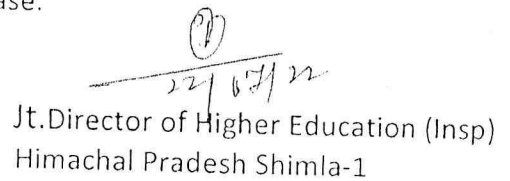 ase.
Jt.Director of Higher Education (Insp)
Himachal Pradesh Shimla-1